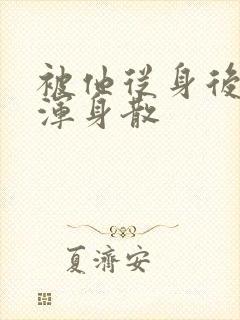 被他從身後
渾身散
夏濟安